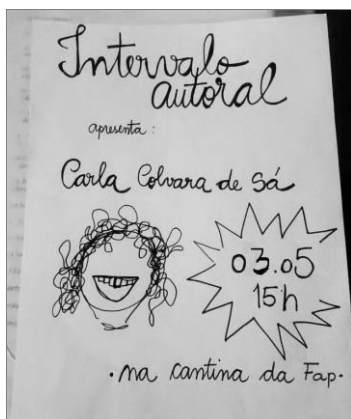 Intervalo
autoral
apresenta:
Carla Colvara de Sá
03.05
15h
• na cantina da Fap •